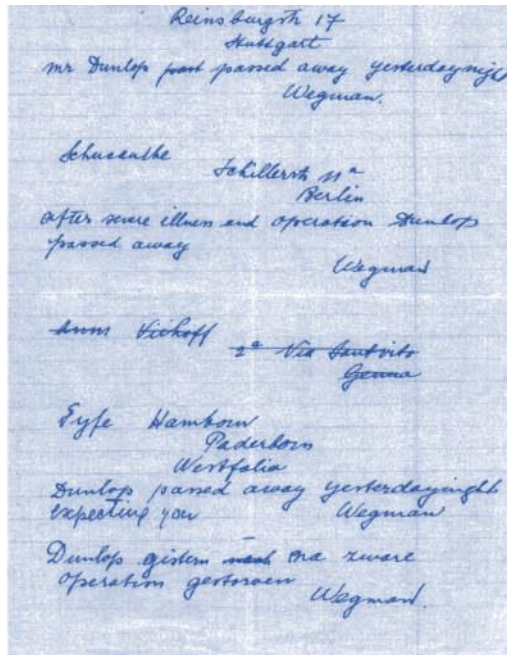 Reinsburgstr 17
Stuttgart
Mr Dunlop past passed away yesterdaynight
Wegman.
Schillerstr 11a
Berlin
After severe illness and operation Dunlop
passed away
Wegman
Anna Viehoff
2a Via Sant vito
Genua
Fyfe Hamborn
Paderborn
Westfalia
Dunlop passed away yesterdaynight
Expecting you Wegman
Dunlop gistern nach na zware
operation gestorven
Wegman.